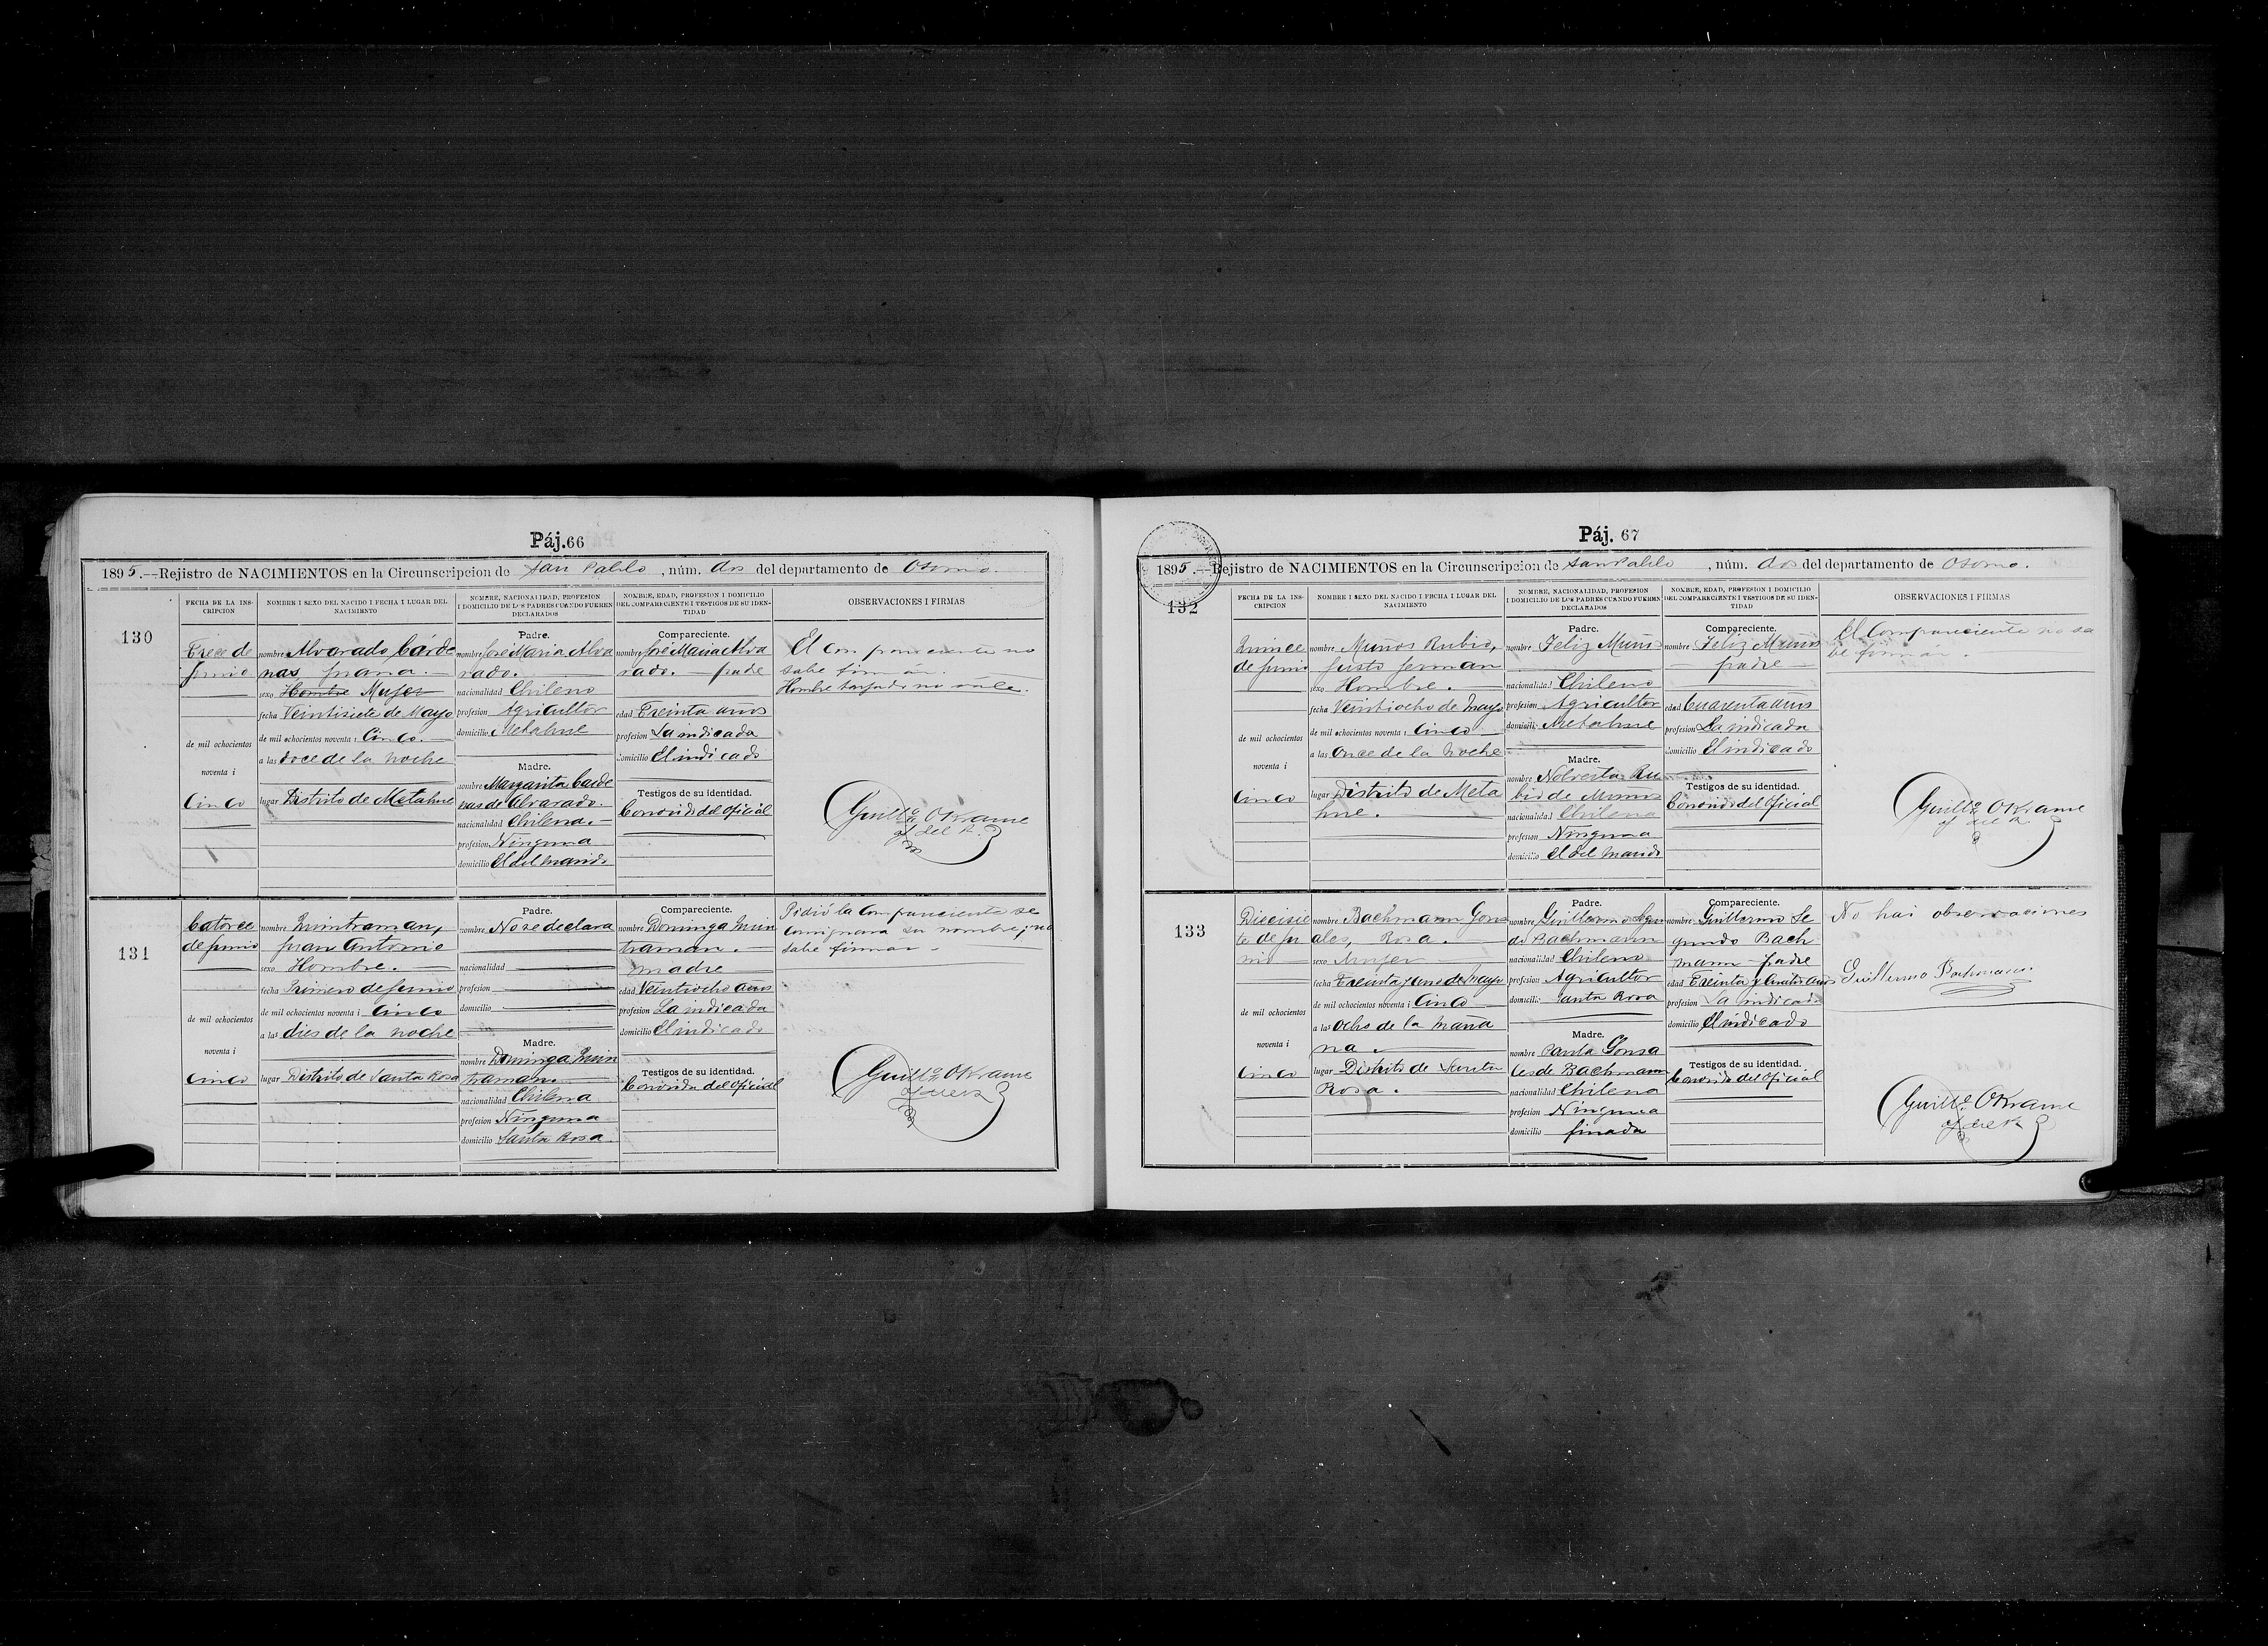 Páj. 66
1895.--Rejistro de NACIMIENTOS en la Circunscripcion de San Pablo, núm. dos del departamento de Osorno.
FECHA DE LA INSCRIPCION
NOMBRE I SEXO DEL NACIDO I FECHA I LUGAR DEL NACIMIENTO
NOMBRE, NACIONALIDAD, PROFESION I DOMICILIO DE LOS PADRES CUANDO FUEREN DECLARADOS
NOMBRE, EDAD, PROFESION I DOMICILIO DEL COMPARECIENTE I TESTIGOS DE SU IDENTIDAD
OBSERVACIONES I FIRMAS
130
Trece de
Junio
de mil ochocientos
noventa i
Cinco
nombre Alvarado Cárde
nas, Juana.
sexo Hombre Mujer
fecha Veintisiete de Mayo
de mil ochocientos noventa i Cinco.
a las doce de la noche
lugar Distrito de Metahue
Padre.
nombre José Maria Alva
rado.
nacionalidad Chileno
profesion Agricultor
domicilio Metahue
Madre.
nombre Margarita Carde
nas de Alvarado.
nacionalidad Chilena.
profesion Ninguna
domicilio El del marido
Compareciente.
nombre José Maria Alva
rado. padre
edad Treinta años
profesion La indicada
domicilio El indicado
Testigos de su identidad.
Conocido del Oficial
El compareciente no
sabe firmar.
Hombre tarjado no vale.
Guillo. OKrame
of del R. C.
131
Catorce
de Junio
de mil ochocientos
noventa i
Cinco
nombre Quintraman,
Juan Antonio
sexo Hombre.
fecha Primero de Junio
de mil ochocientos noventa i Cinco
a las dies de la noche
lugar Distrito de Santa Rosa
Padre.
nombre No se declara
nacionalidad
profesion
domicilio
Madre.
nombre Dominga Quin
traman.
nacionalidad Chilena
profesion Ninguna
domicilio Santa Rosa.
Compareciente.
nombre Dominga Quin
traman.
madre
edad Veintiocho años
profesion La indicada
domicilio El indicado
Testigos de su identidad.
Conocida del Oficial
Pidió la compareciente se
consignara su nombre, i no
sabe firmar.
Guillo. OKrame
Páj. 67
1895.--Rejistro de NACIMIENTOS en la Circunscripcion de San Pablo, núm. dos del departamento de Osorno.
FECHA DE LA INSCRIPCION
NOMBRE I SEXO DEL NACIDO I FECHA I LUGAR DEL NACIMIENTO
NOMBRE, NACIONALIDAD, PROFESION I DOMICILIO DE LOS PADRES CUANDO FUEREN DECLARADOS
NOMBRE, EDAD, PROFESION I DOMICILIO DEL COMPARECIENTE I TESTIGOS DE SU IDENTIDAD
OBSERVACIONES I FIRMAS
132
Quince
de Junio
de mil ochocientos
noventa i
Cinco
nombre Muños Rubio,
Justo Jerman
sexo Hombre.
fecha Veintiocho de Mayo
de mil ochocientos noventa i Cinco
a las Once de la noche
lugar Distrito de Meta
hue.
Padre.
nombre Feliz Muños
nacionalidad Chileno
profesion Agricultor
domicilio Metahue
Madre.
nombre Nolverta Ru
bio de Muños
nacionalidad Chilena
profesion Ninguna
domicilio El del marido
Compareciente.
nombre Feliz Muños
padre
edad Cuarenta años
profesion La indicada
domicilio El indicado
Testigos de su identidad.
Conocido del Oficial
El Compareciente no sa
be firmar.
Guillo. OKrame
of del R. C.
133
Diecisie
te de Ju
nio
de mil ochocientos
noventa i
Cinco
nombre Bachmann Gons
ales, Rosa.
sexo Mujer
fecha Treinta y uno de Mayo
de mil ochocientos noventa i Cinco
a las Ocho de la maña
na.
lugar Distrito de Santa
Rosa.
Padre.
nombre Guillermo Segun
do Bachmann
nacionalidad Chileno
profesion Agricultor
domicilio Santa Rosa
Madre.
nombre Paula Gonsa
les de Bachmann
nacionalidad Chilena
profesion Ninguna
domicilio finada
Compareciente.
nombre Guillermo Se
gundo Bach
mann padre
edad Treinta y Cuatro años
profesion La indicada
domicilio El indicado
Testigos de su identidad.
Conocido del Oficial
No hai observaciones
Guillermo Bachmann
Guillo. OKrame